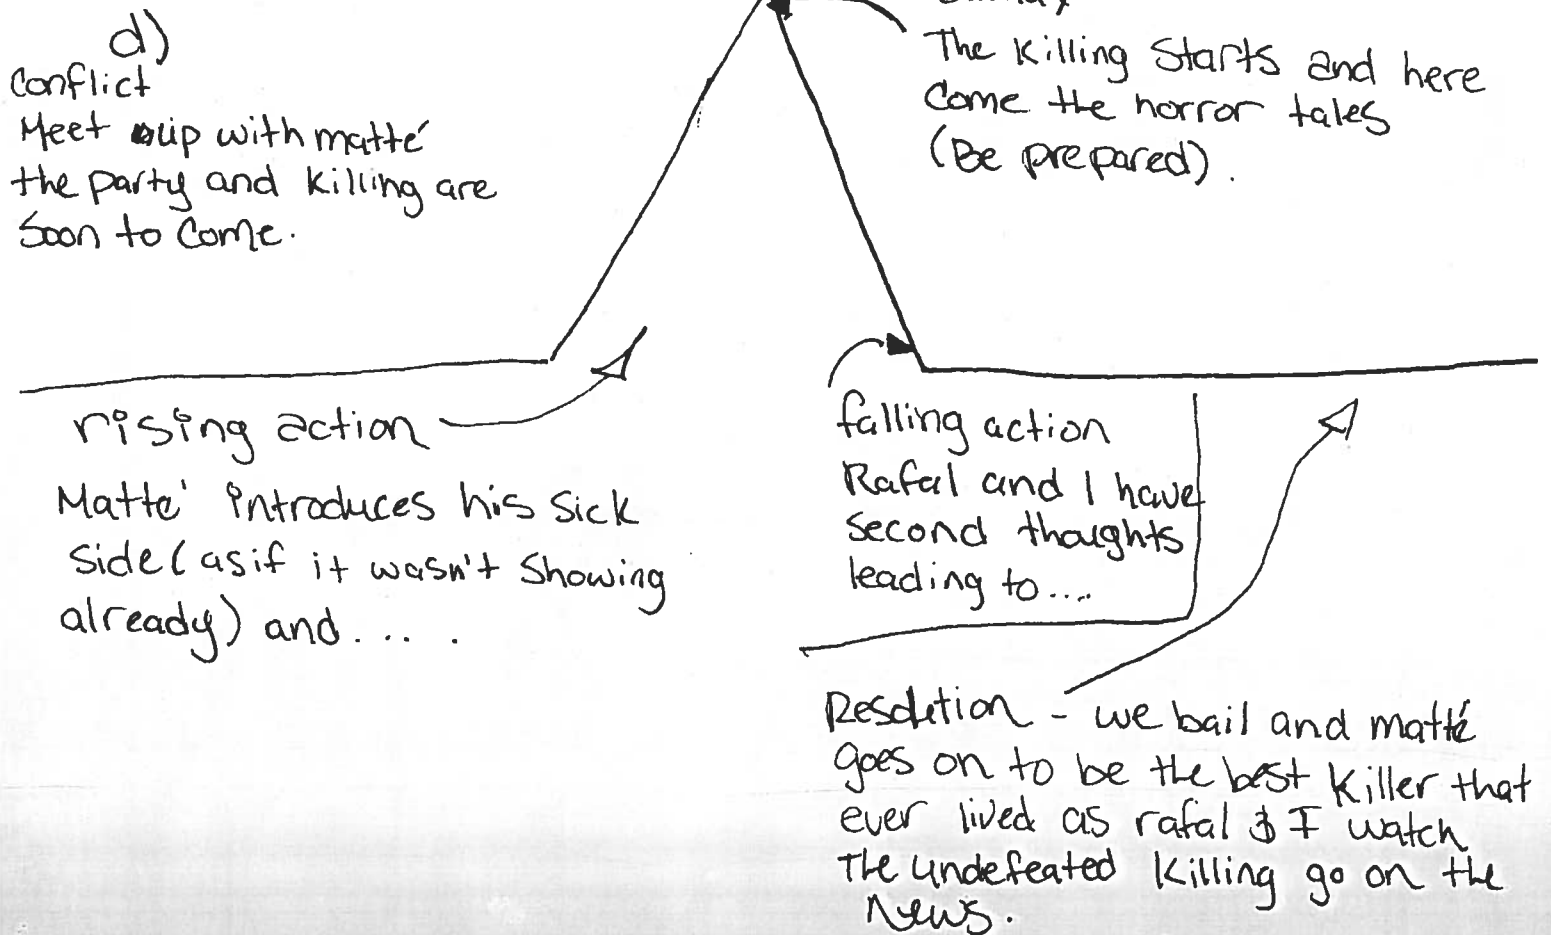 d)
Conflict
Meet up with matté
the party and killing are
soon to come.
The killing starts and here
come the horror tales
(Be prepared).
rising action
Matte' introduces his sick
side (as if it wasn't showing
already) and.....
falling action
Rafal and I have
second thoughts
leading to....
Resolution - we bail and matté
goes on to be the best killer that
ever lived as rafal & I watch
The undefeated killing go on the
News.